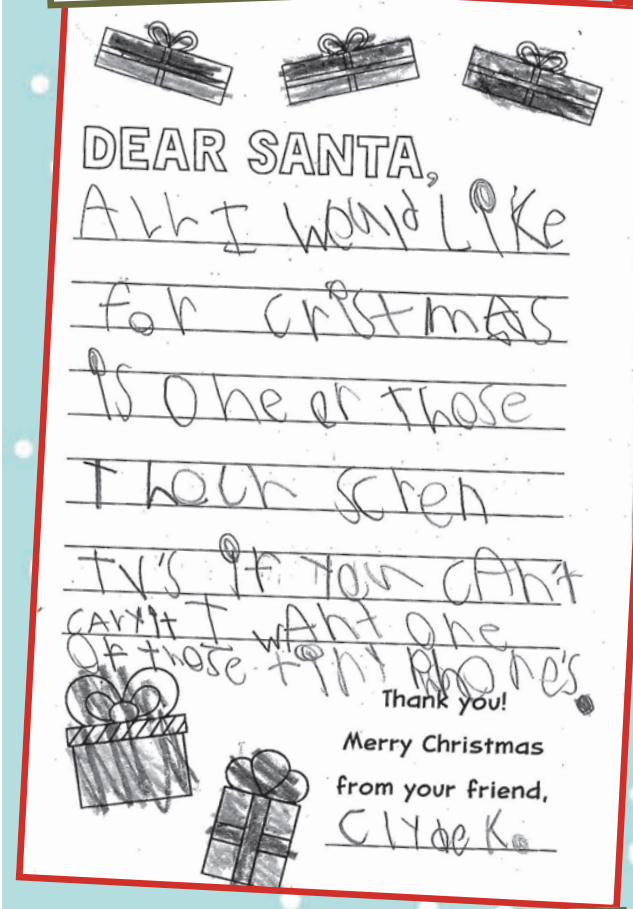 DEAR SANTA,
All I would Like
for cristmas
is one or those
Touch scren
TV's if you cAn't
cAry it I wAnt one
of those tiny Phone's.
Thank you!
Merry Christmas
from your friend,
Clyde K.